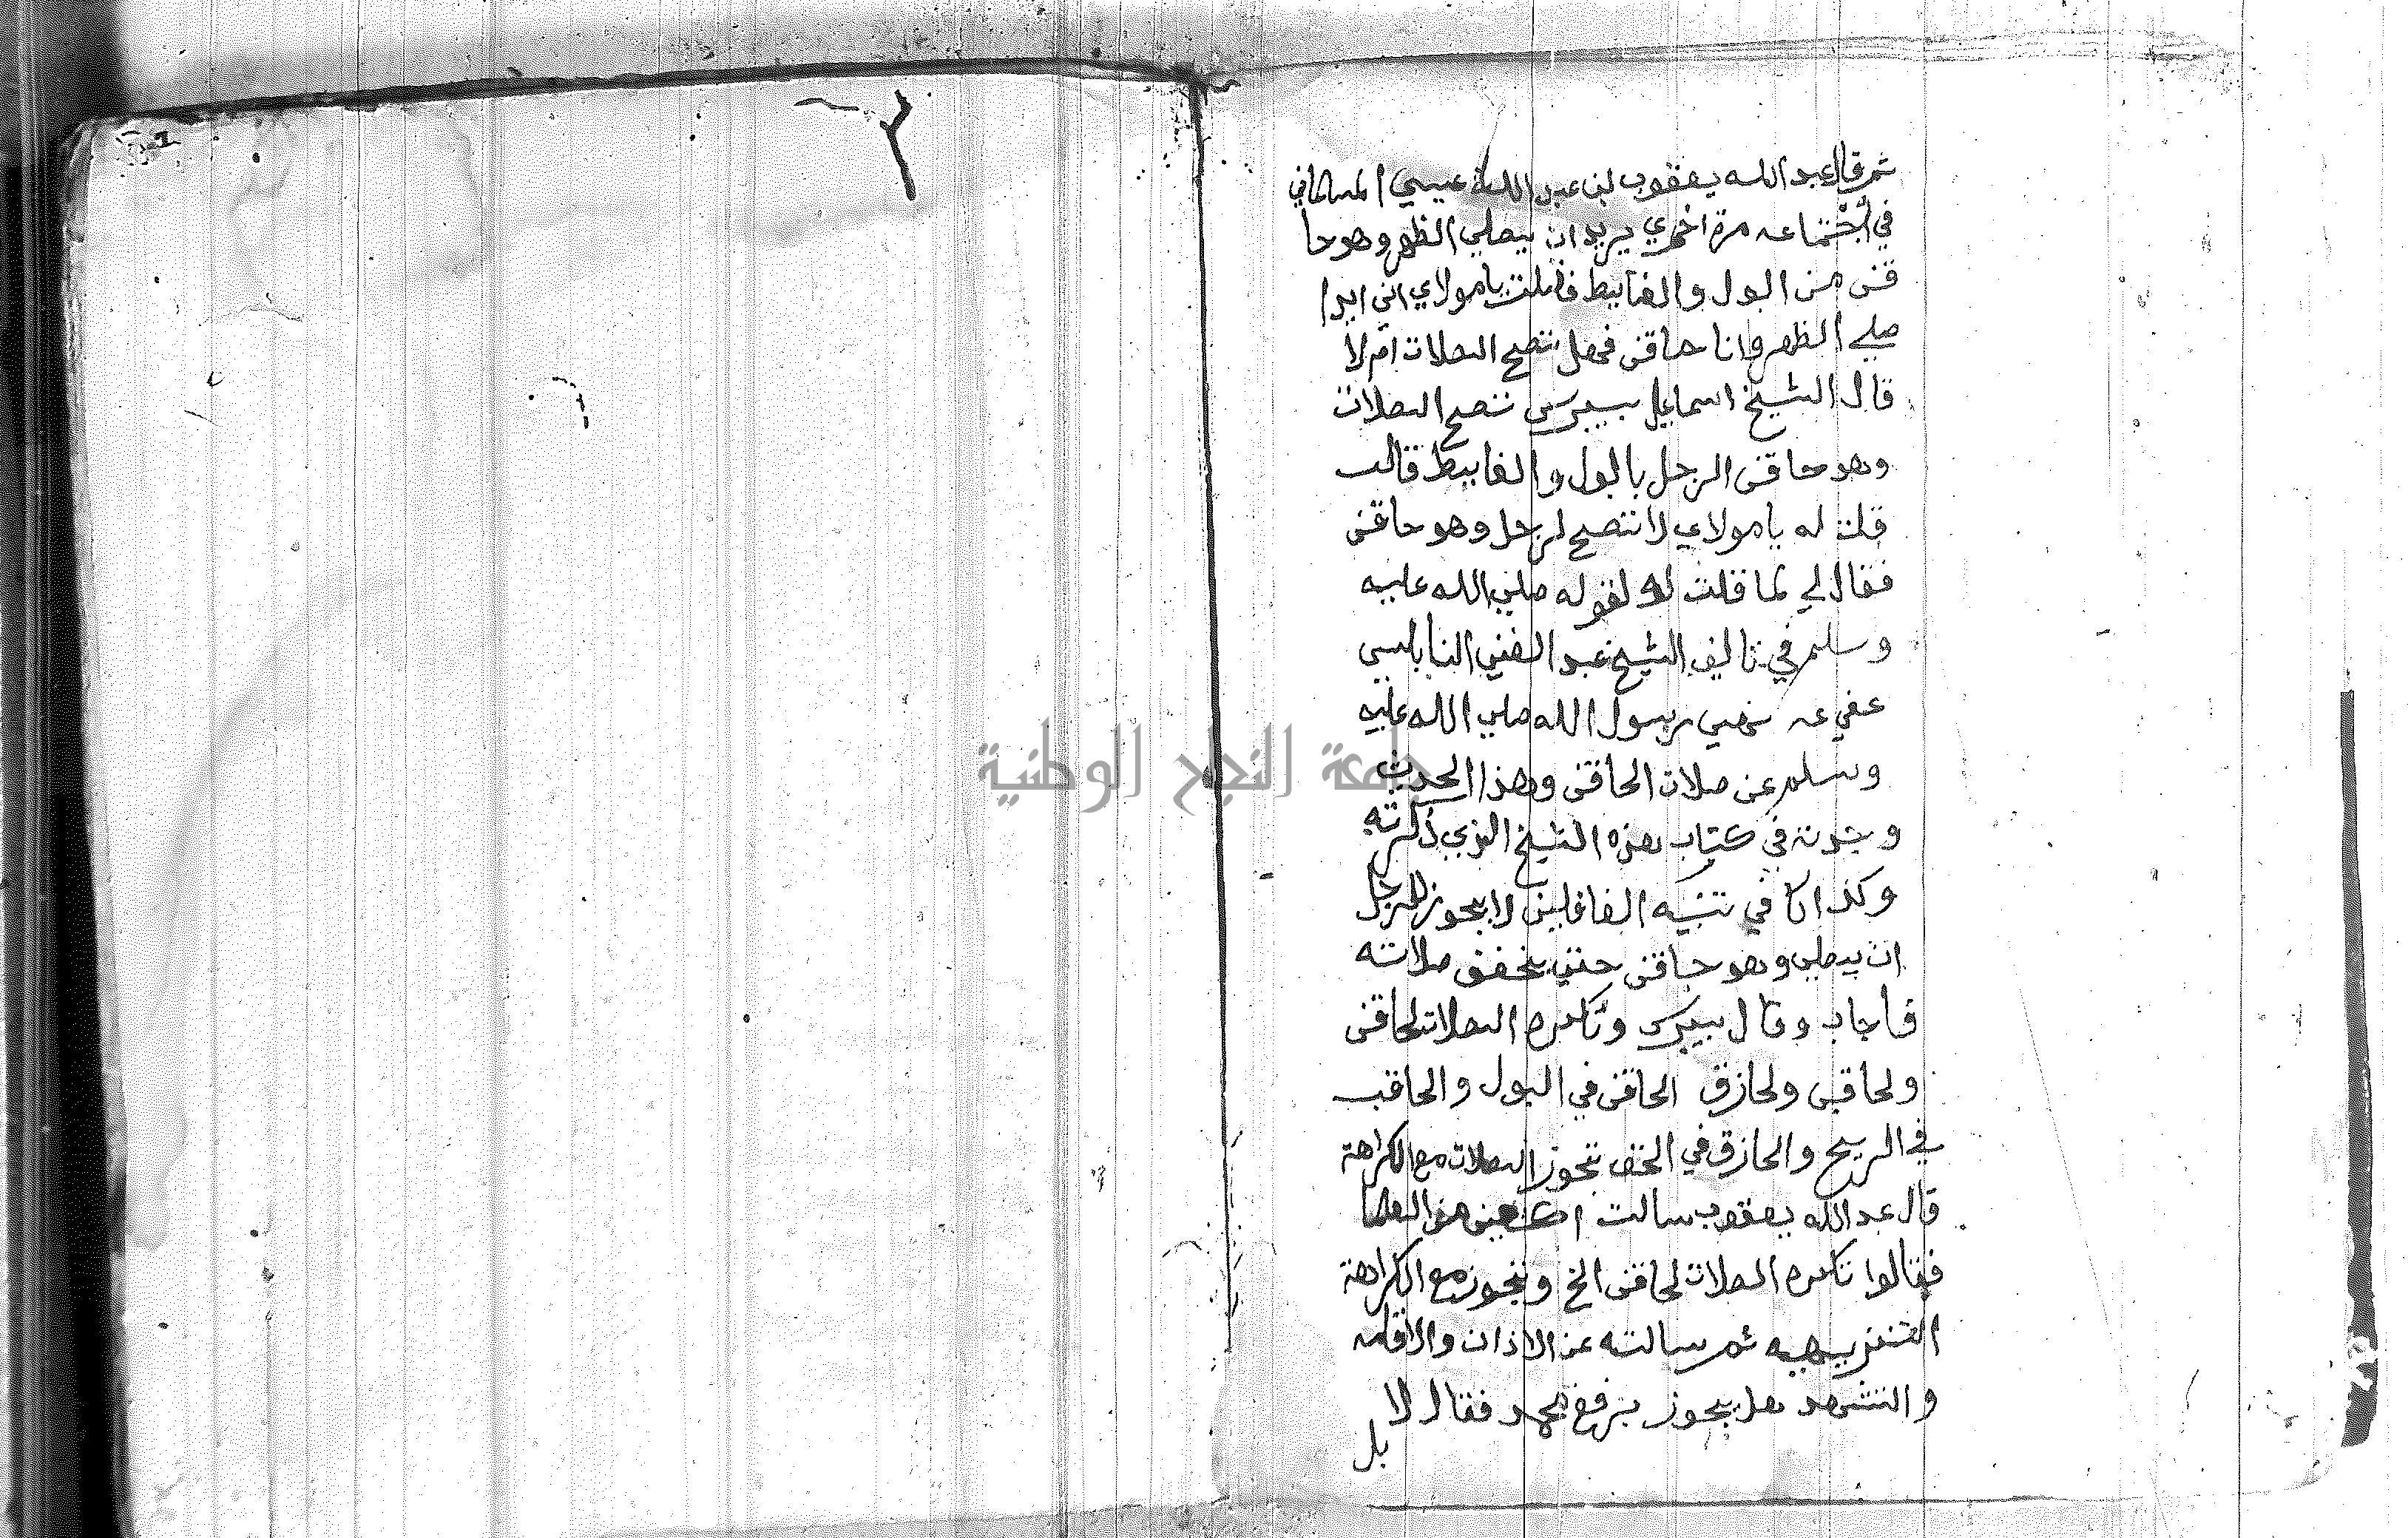 ثم قال عبد الله يعقوب ابن عبد الله عيسي
في اجتماعه مرة اخري يريد ان يصلي الظهر وهو حا
قن من البول والغايط فقلت يا مولاي اني اريد ا
صلي الظهر وانا حاقن فهل تصح الصلات ام لا
قال الشيخ اسماعيل بيبرس تصح الصلات
وهو حاقن الرجل بالبول والغايط قالت
قلت له يا مولاي لا تصح لرجل وهو حاقن
فقال لي لما قلت له لقوله صلي الله عليه
وسلم في تاليف الشيخ عبد الغني النابلسي
عفي عنه نهي رسول الله صلي الله عليه
وسلم عن صلات الحاقن وهذا الحديث
وجدته في كتاب هذه الشيخ الذي ذكرته
وكذا في تنبيه الغافلين لا يجوز للرجل
ان يصلي وهو حاقن حتي يخفف صلاته
فأجاب وقال بيبرس وتكره الصلات لحاقن
ولحاقب ولحازق الحاقن في البول والحاقب
في الريح والحازق في الخف تجوز الصلات مع الكراهة
قال عبد الله يعقوب سالت من العلما
فقالوا تكره الصلات لحاقن الخ وتجوز مع الكراهة
التنزيهيه ثم سالته عن الاذان والاقامه
والتشهد هل يجوز برفع محمد فقال لا
بل
جامعة النجاح الوطنية